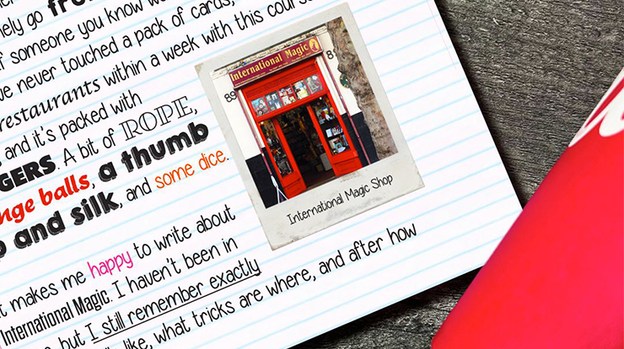 go
someone you know
never touched a pack of cards,
restaurants within a week with this
and it's packed with
GERS. A bit of ROPE,
nge balls, a thumb
and silk, and some dice.
makes me happy to write about
International Magic. I haven't been in
but I still remember exactly
like, what tricks are where, and after how
International Magic
89
International Magic Shop